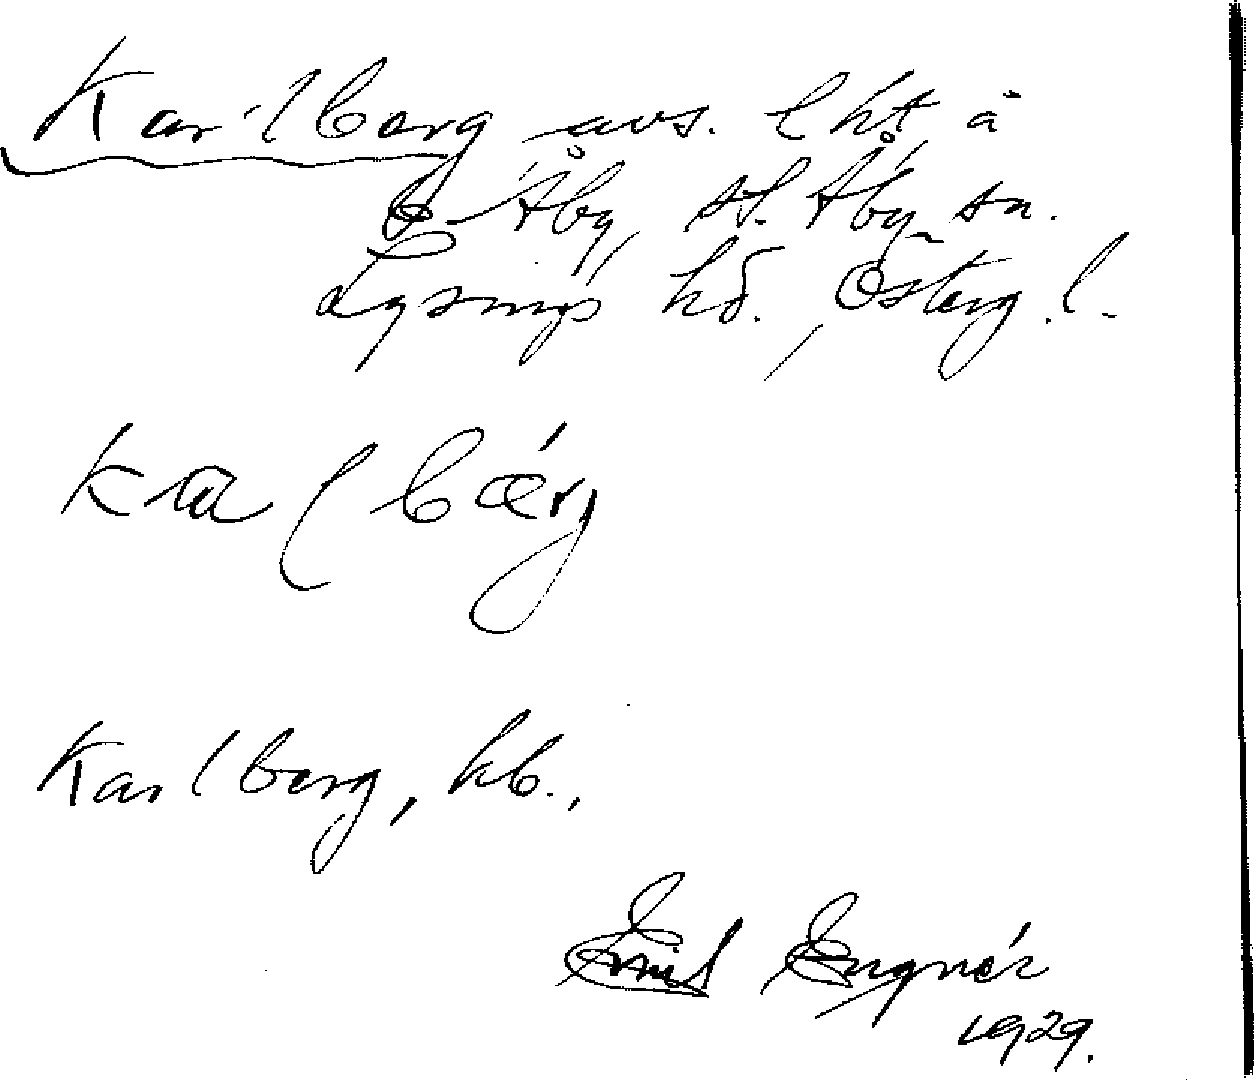 Karlberg avs. lht å
Åby, St. Åby sn.
Lysings hd., Österg. l.
kalbérg
Karlberg, hb.,
Emil Engnér
1929.